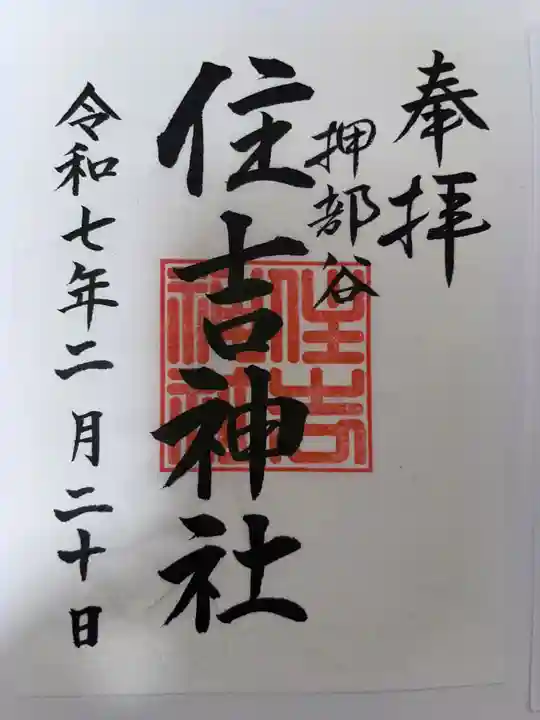 奉拝
押部谷
住吉神社
住吉神社
令和七年二月二十日